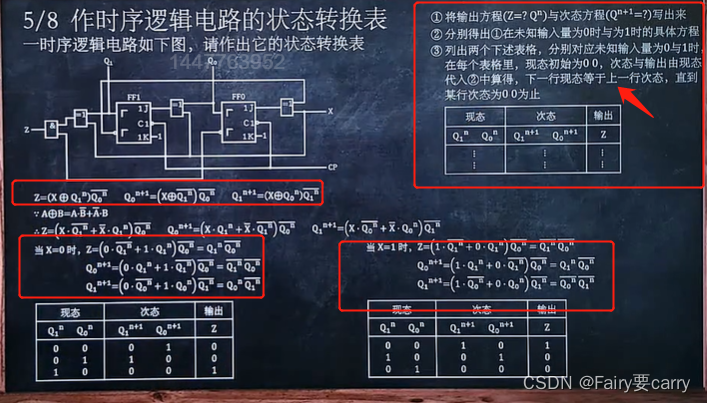 5/8 作时序逻辑电路的状态转换表
一时序逻辑电路如下图，请作出它的状态转换表
① 将输出方程(Z=? Qⁿ)与次态方程(Qⁿ⁺¹=?)写出来
② 分别得出①在未知输入量为0时与为1时的具体方程
③ 列出两个下述表格，分别对应未知输入量为0与1时，
在每个表格里，现态初始为0 0，次态与输出由现态
代入②中算得，下一行现态等于上一行次态，直到
某行次态为0 0为止
现态 次态 输出
Q₁ⁿ Q₀ⁿ Q₁ⁿ⁺¹ Q₀ⁿ⁺¹ Z
⋮ ⋮ ⋮
Q₁ Q₀
FF1 FF0
Z & =1 1J C1 1K 1 =1 1J C1 1K 1 =1 X
CP
Z=(X⊕Q₁ⁿ)\overline{Q₀ⁿ} Q₀ⁿ⁺¹=(\overline{X⊕Q₁ⁿ})\overline{Q₀ⁿ} Q₁ⁿ⁺¹=(X⊕Q₀ⁿ)\overline{Q₁ⁿ}
∵ A⊕B=A·\overline{B}+\overline{A}·B
∴ Z=(X·\overline{Q₁ⁿ}+\overline{X}·Q₁ⁿ)\overline{Q₀ⁿ} Q₀ⁿ⁺¹=(X·Q₁ⁿ+\overline{X}·\overline{Q₁ⁿ})\overline{Q₀ⁿ} Q₁ⁿ⁺¹=(X·\overline{Q₀ⁿ}+\overline{X}·Q₀ⁿ)\overline{Q₁ⁿ}
当X=0时，Z=(0·\overline{Q₁ⁿ}+1·Q₁ⁿ)\overline{Q₀ⁿ}=Q₁ⁿ\overline{Q₀ⁿ}
Q₀ⁿ⁺¹=(0·Q₁ⁿ+1·\overline{Q₁ⁿ})\overline{Q₀ⁿ}=\overline{Q₁ⁿ}\overline{Q₀ⁿ}
Q₁ⁿ⁺¹=(0·\overline{Q₀ⁿ}+1·Q₀ⁿ)\overline{Q₁ⁿ}=Q₀ⁿ\overline{Q₁ⁿ}
当X=1时，Z=(1·\overline{Q₁ⁿ}+0·Q₁ⁿ)\overline{Q₀ⁿ}=\overline{Q₁ⁿ}\overline{Q₀ⁿ}
Q₀ⁿ⁺¹=(1·Q₁ⁿ+0·\overline{Q₁ⁿ})\overline{Q₀ⁿ}=Q₁ⁿ\overline{Q₀ⁿ}
Q₁ⁿ⁺¹=(1·\overline{Q₀ⁿ}+0·Q₀ⁿ)\overline{Q₁ⁿ}=\overline{Q₀ⁿ}\overline{Q₁ⁿ}
现态 次态 输出
Q₁ⁿ Q₀ⁿ Q₁ⁿ⁺¹ Q₀ⁿ⁺¹ Z
0 0 0 1 0
0 1 1 0 0
1 0 0 0 1
现态 次态 输出
Q₁ⁿ Q₀ⁿ Q₁ⁿ⁺¹ Q₀ⁿ⁺¹ Z
0 0 1 0 1
1 0 0 1 0
0 1 0 0 0
CSDN @Fairy要carry